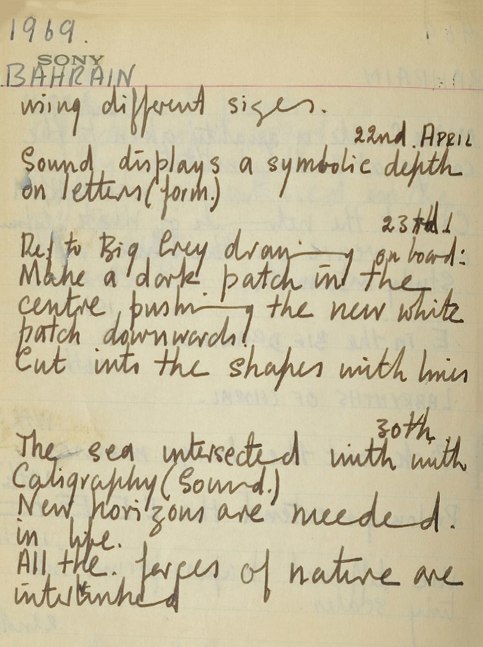 1969.
SONY
BAHRAIN
using different sizes.
22nd. APRIL
Sound displays a symbolic depth
on letters (form.)
23rd.
Ref to Big Grey drawing on board:
Make a dark patch in the
centre, pushing the new white
patch downwards!
Cut into the shapes with lines
30th.
The sea intersected with with
Caligraphy (Sound.)
New horizons are needed.
in live.
All the. forces of nature are
interlinked